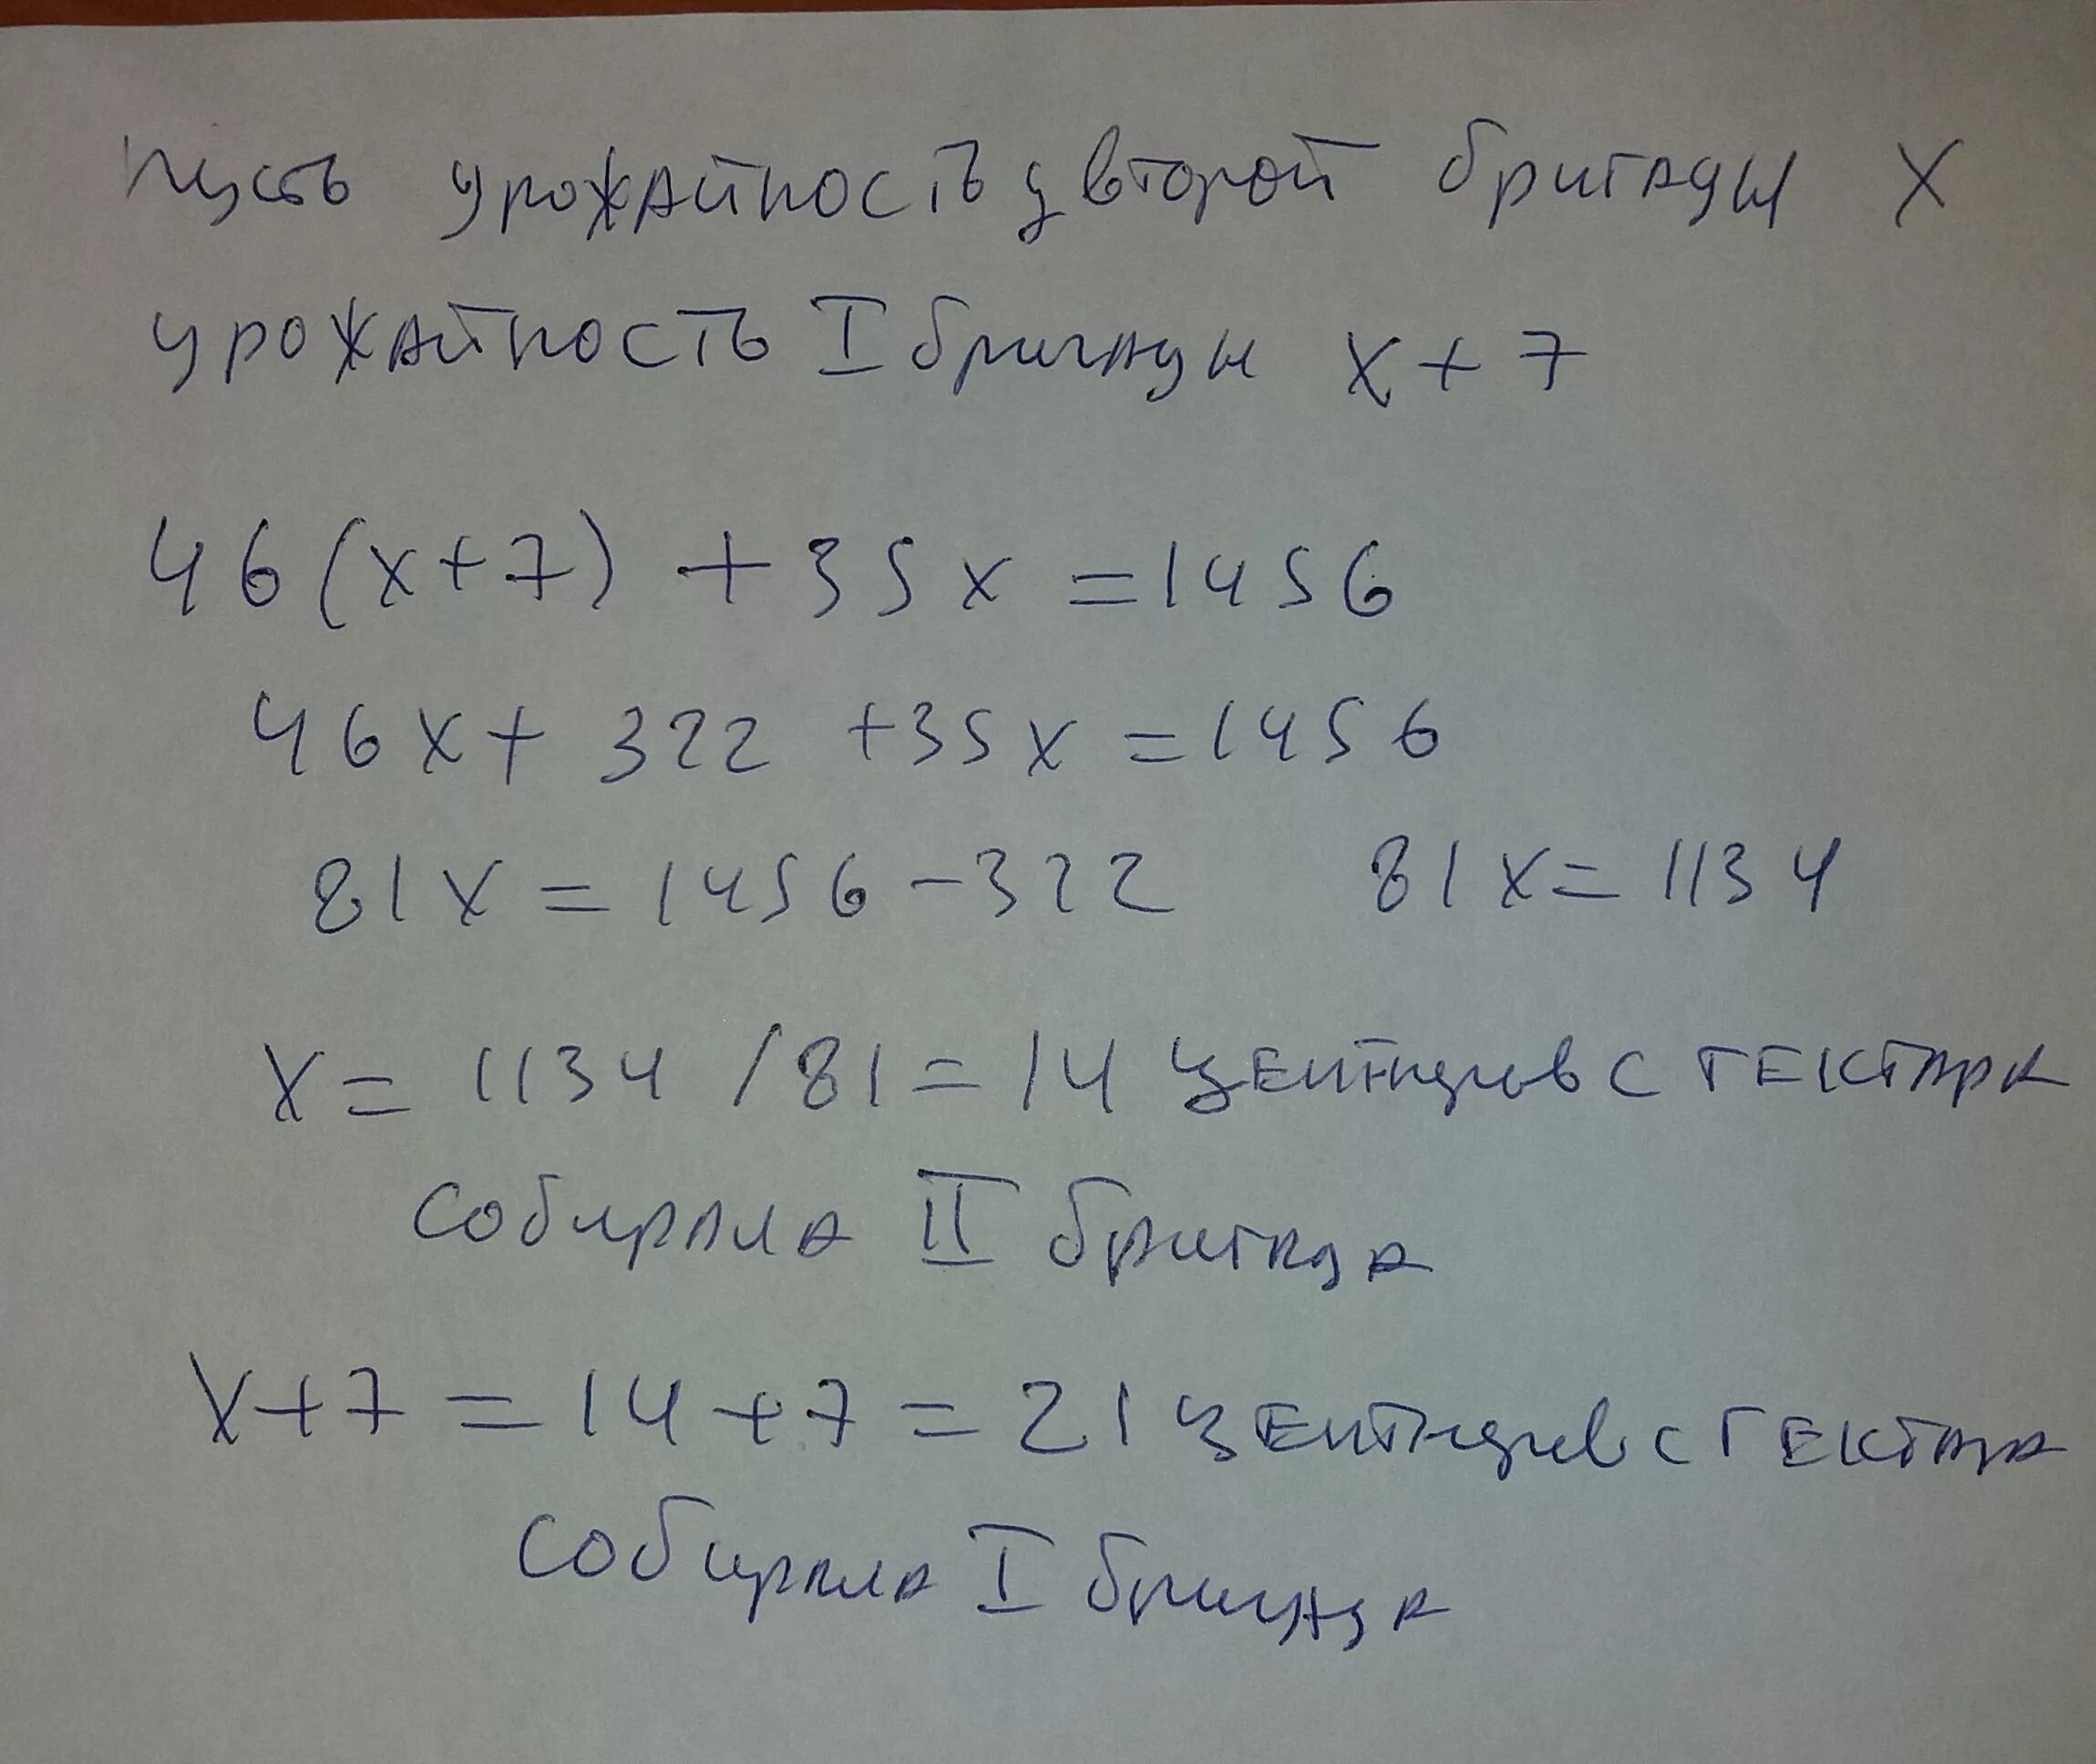 пусть урожайность у второй бригады x
урожайность I бригады x + 7
46(x+7) + 35x = 1456
46x + 322 + 35x = 1456
81x = 1456 - 322 81x = 1134
x = 1134 / 81 = 14 центнеров с гектара
собирала II бригада
x + 7 = 14 + 7 = 21 центнеров с гектара
собирала I бригада